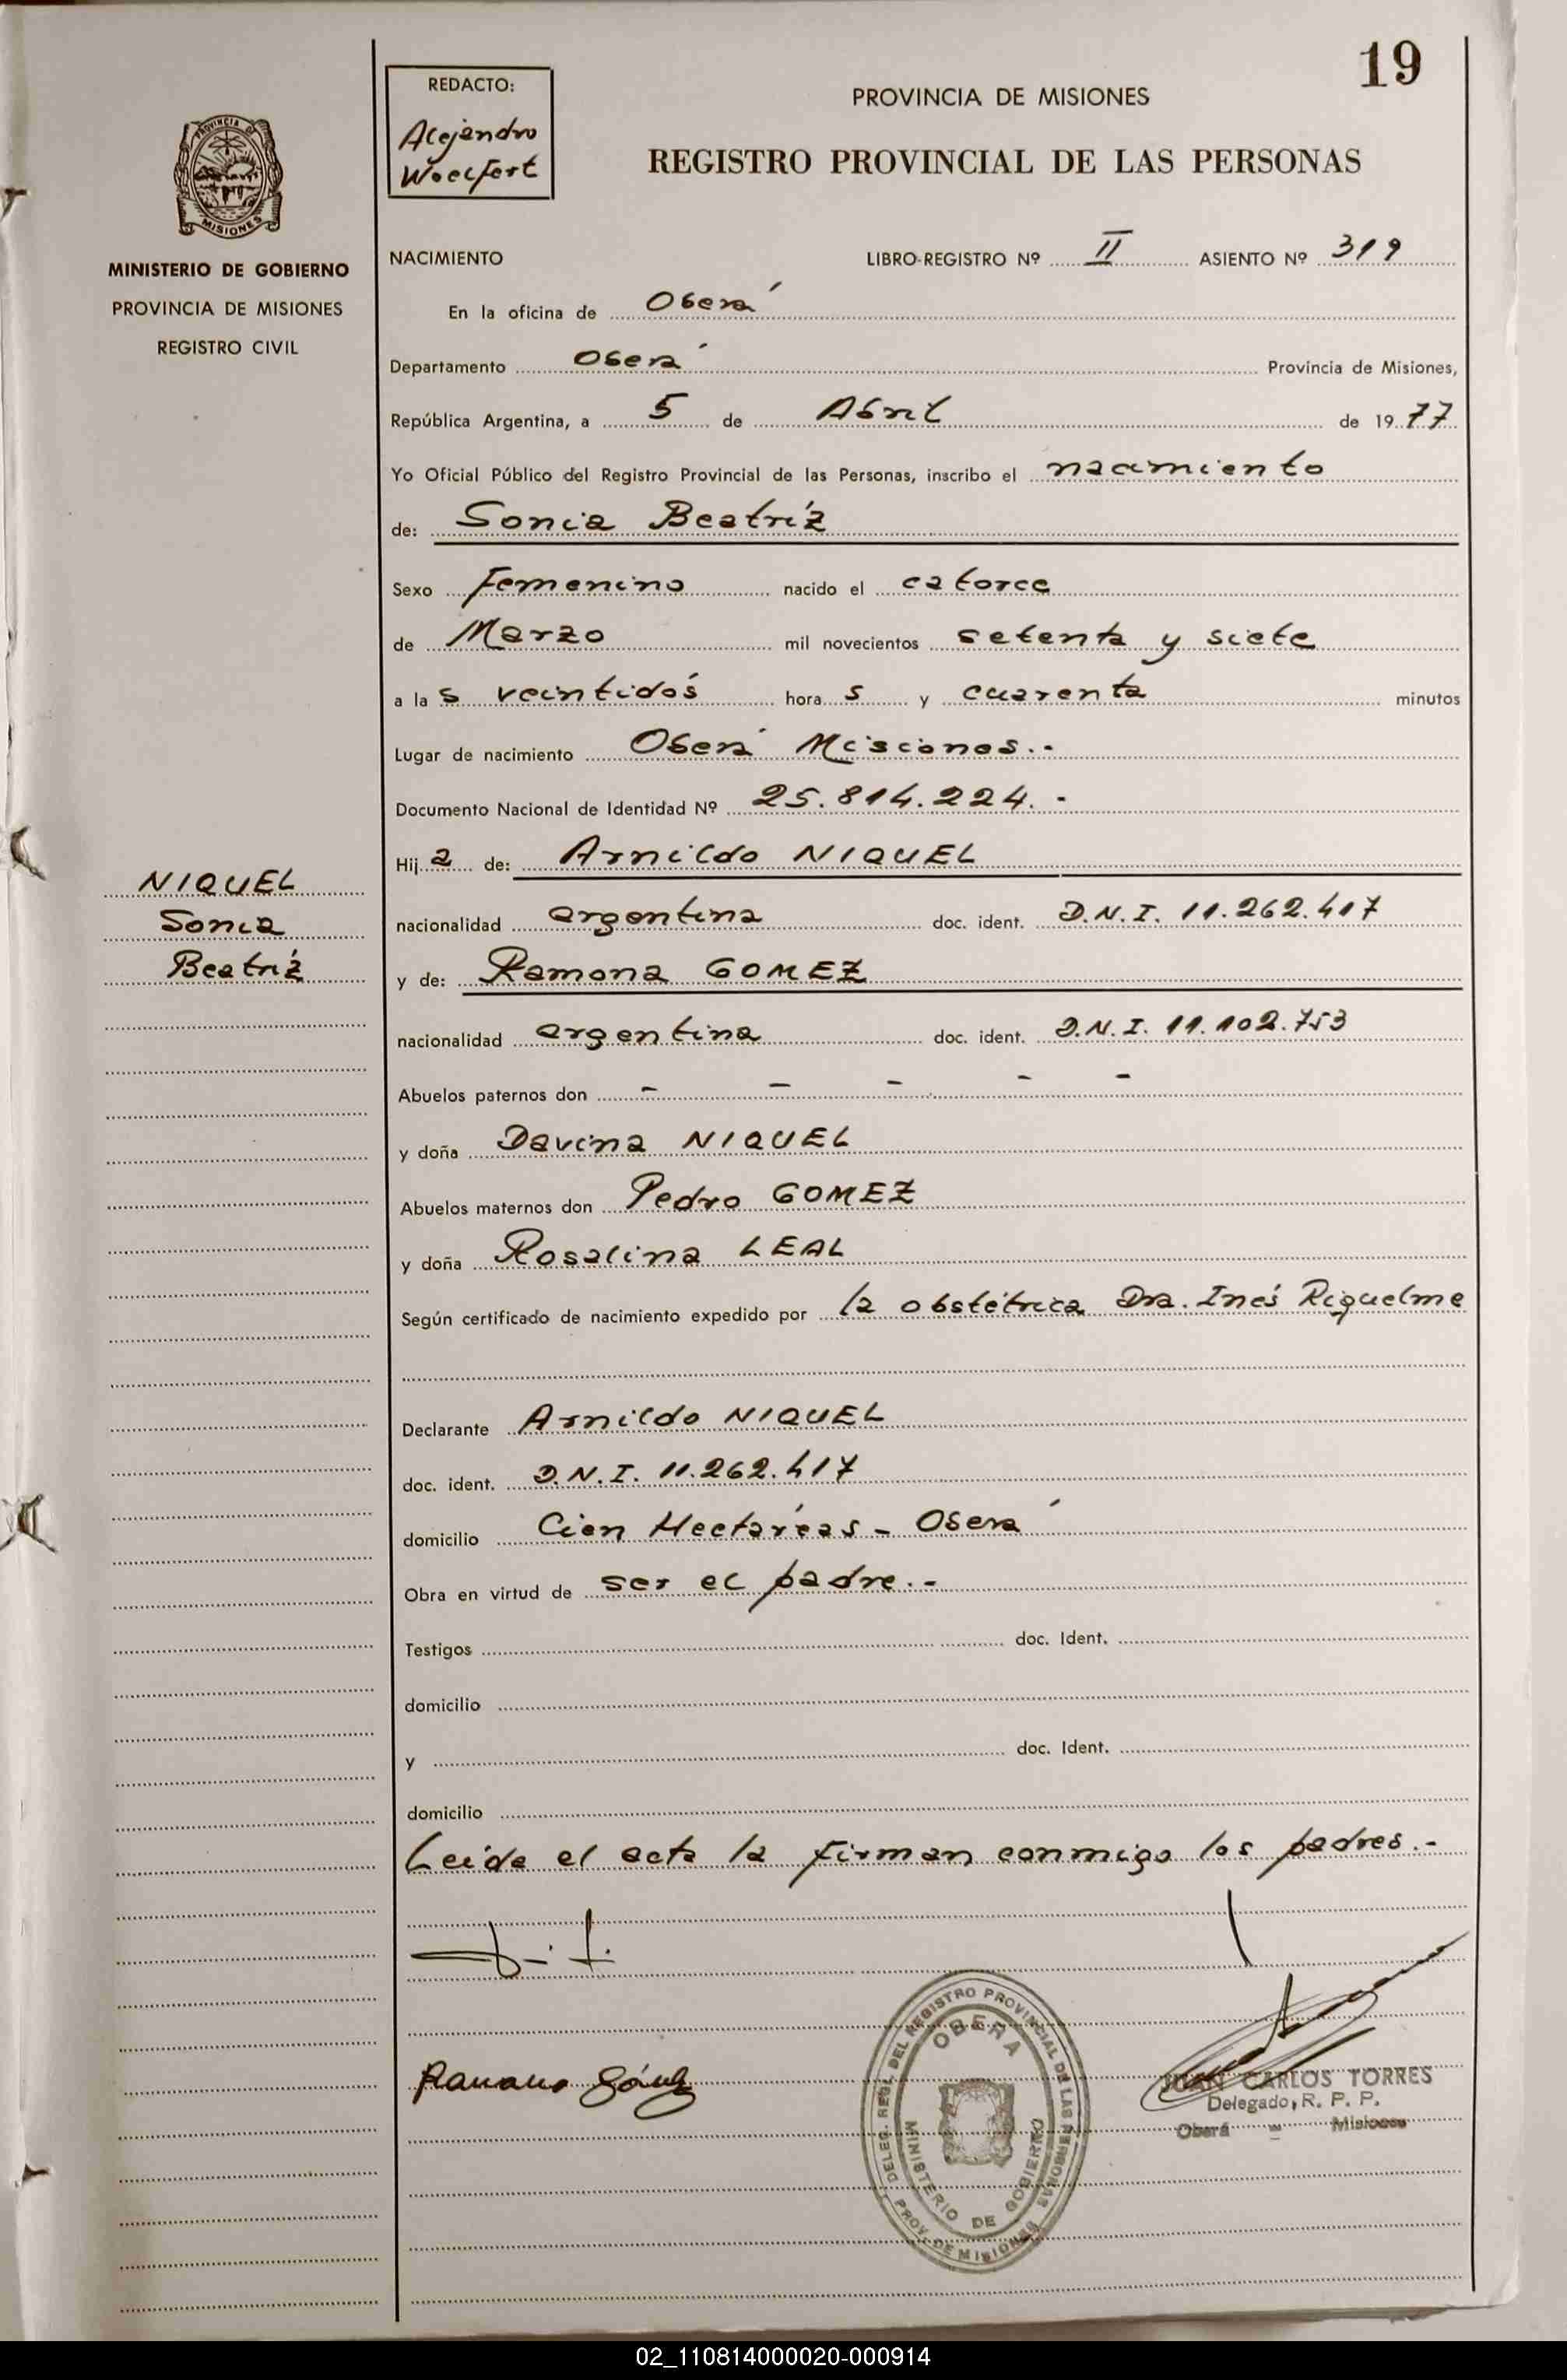 19
REDACTO:
Alejandro
Woelfert
PROVINCIA DE MISIONES
REGISTRO PROVINCIAL DE LAS PERSONAS
PROVINCIA DE
MISIONES
MINISTERIO DE GOBIERNO
PROVINCIA DE MISIONES
REGISTRO CIVIL
NACIMIENTO LIBRO-REGISTRO Nº II ASIENTO Nº 319
En la oficina de Oberá
Departamento Oberá Provincia de Misiones,
República Argentina, a 5 de Abril de 1977
Yo Oficial Público del Registro Provincial de las Personas, inscribo el nacimiento
de: Sonia Beatríz
Sexo Femenino nacido el catorce
de Marzo mil novecientos setenta y siete
a las veintidós horas y cuarenta minutos
Lugar de nacimiento Oberá Misiones.-
Documento Nacional de Identidad Nº 25.814.224.-
Hija de: Arnildo NIQUEL
NIQUEL
Sonia
Beatríz
nacionalidad argentina doc. ident. D.N.I. 11.262.417
y de: Ramona GOMEZ
nacionalidad argentina doc. ident. D.N.I. 11.102.753
Abuelos paternos don - - - - -
y doña Davina NIQUEL
Abuelos maternos don Pedro GOMEZ
y doña Rosalina LEAL
Según certificado de nacimiento expedido por la obstétrica Dra. Inés Riquelme
Declarante Arnildo NIQUEL
doc. ident. D.N.I. 11.262.417
domicilio Cien Hectáreas - Oberá
Obra en virtud de ser el padre.-
Testigos doc. Ident.
domicilio
y doc. Ident.
domicilio
Leída el acta la firman conmigo los padres.-
DELEG. REGL. DEL REGISTRO PROVINCIAL DE LAS PERSONAS
OBERA
MINISTERIO DE GOBIERNO
PROV. DE MISIONES
JUAN CARLOS TORRES
Delegado, R. P. P.
Oberá - Misiones
02_110814000020-000914